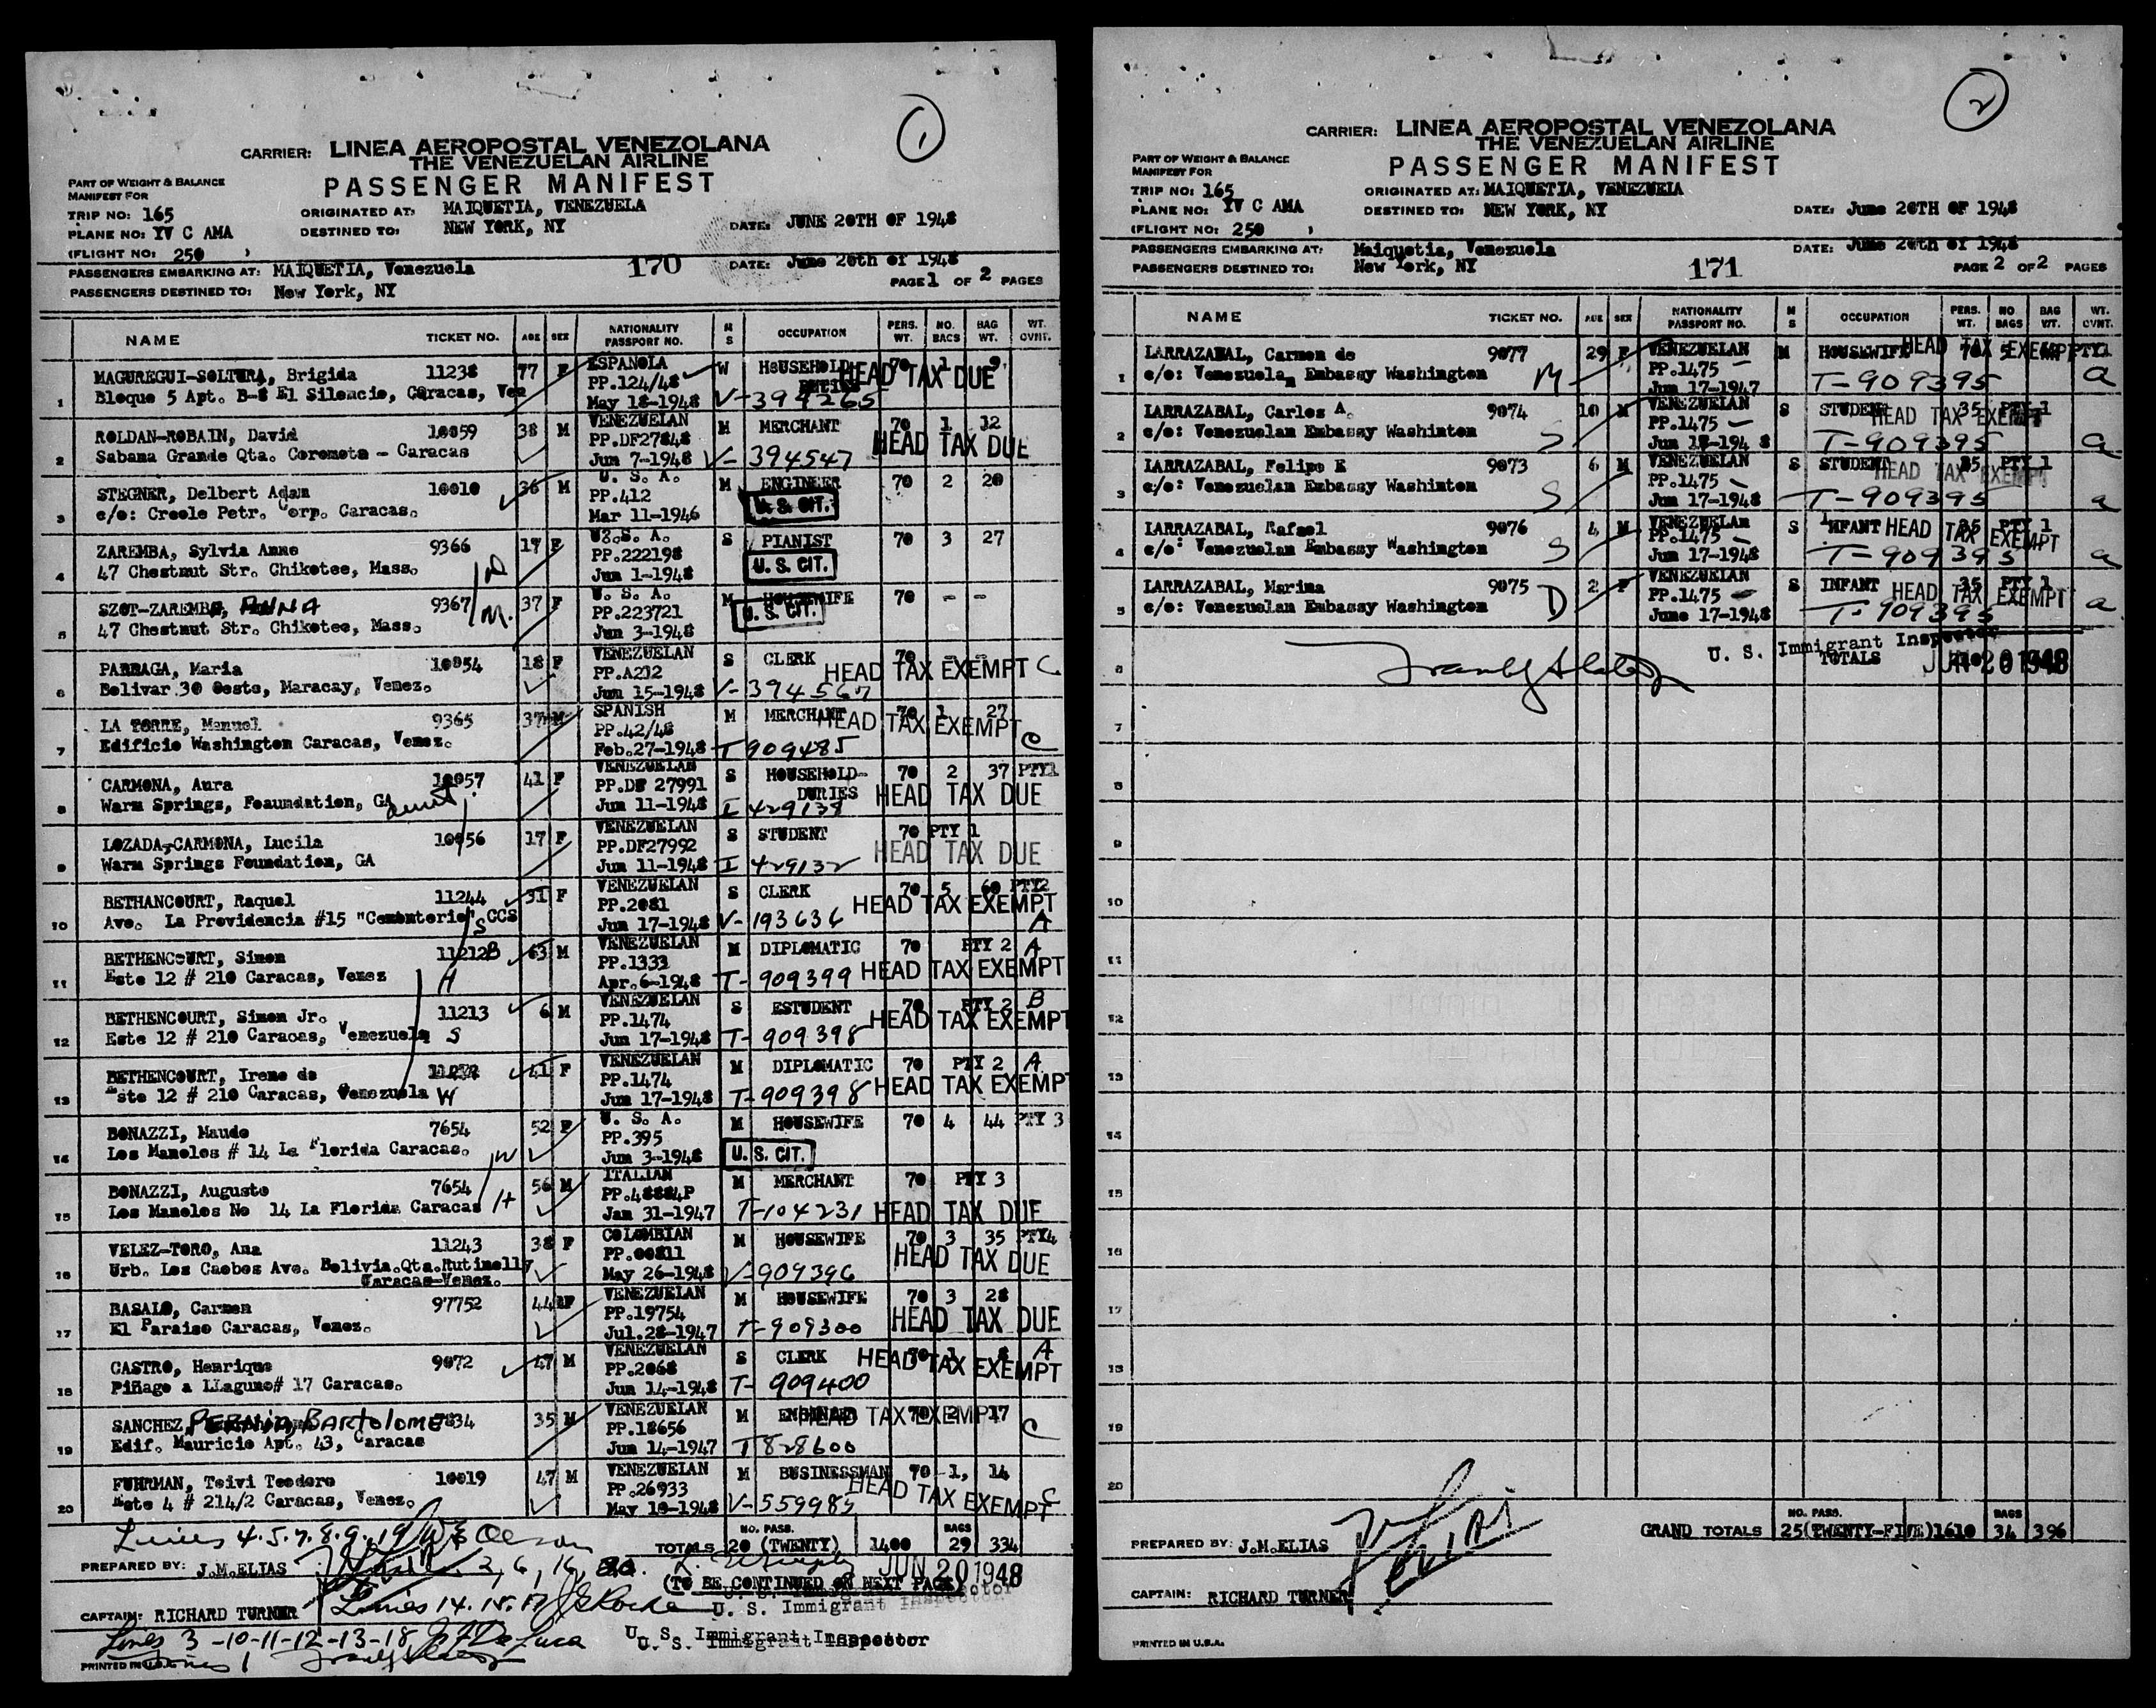 1
CARRIER: LINEA AEROPOSTAL VENEZOLANA
THE VENEZUELAN AIRLINE
PASSENGER MANIFEST
PART OF WEIGHT & BALANCE
MANIFEST FOR
TRIP NO: 165
ORIGINATED AT: MAIQUETIA, VENEZUELA
PLANE NO: YV C AMA
DESTINED TO: NEW YORK, NY
DATE: JUNE 20TH OF 1948
(FLIGHT NO: 250 )
PASSENGERS EMBARKING AT: MAIQUETIA, Venezuela
170
DATE: June 20th of 1948
PASSENGERS DESTINED TO: New York, NY
PAGE 1 OF 2 PAGES
NAME TICKET NO. AGE SEX NATIONALITY PASSPORT NO. M S OCCUPATION PERS. WT. NO. BAGS BAG WT. WT. CVNT.
1 MAGUREGUI-SOLTURA, Brigida 11238 77 F ESPANOLA W HOUSEHOLD 70 1 9
PP.124/48 HEAD TAX DUE
Bloque 5 Apt. B-8 El Silencio, Caracas, Ven May 18-1948 V-394265
2 ROLDAN-ROBAIN, David 10059 38 M VENEZUELAN M MERCHANT 70 1 12
PP.DF27848 HEAD TAX DUE
Sabana Grande Qta. Coromoto - Caracas Jun 7-1948 V-394547
3 STEGNER, Delbert Adam 10010 36 M U. S. A. M ENGINEER 70 2 20
PP.412 U. S. CIT.
c/o: Creole Petr. Corp. Caracas. Mar 11-1946
4 ZAREMBA, Sylvia Anne 9366 17 F U.S. A. S PIANIST 70 3 27
PP.222198 U. S. CIT.
47 Chestnut Str. Chikotee, Mass. Jun 1-1948 D
5 SZOT-ZAREMBA, ANNA 9367 37 F U. S. A. M HOUSEWIFE 70 - -
PP.223721 U. S. CIT.
47 Chestnut Str. Chikotee, Mass. M. Jun 3-1948
6 PARRAGA, Maria 10054 18 F VENEZUELAN S CLERK 70
PP.A212 HEAD TAX EXEMPT C
Bolivar 30 Oeste, Maracay, Venez. Jun 15-1948 V-394567
7 LA TORRE, Manuel 9365 37 M SPANISH M MERCHANT 70 1 27
PP.42/48 HEAD TAX EXEMPT C
Edificio Washington Caracas, Venez. Feb.27-1948 T 909485
8 CARMONA, Aura 10057 41 F VENEZUELAN S HOUSEHOLD- 70 2 37 PTY1
PP.DF 27991 DURIES HEAD TAX DUE
Warm Springs, Feaundation, GA aunt Jun 11-1948 I 429133
9 LOZADA-CARMONA, Lucila 10056 17 F VENEZUELAN S STUDENT 70 PTY 1
PP.DF27992 HEAD TAX DUE
Warm Springs Foundation, GA Jun 11-1948 I 429132
10 BETHANCOURT, Raquel 11244 31 F VENEZUELAN S CLERK 70 5 60 PTY2
PP.2081 HEAD TAX EXEMPT A
Ave. La Providencia #15 "Cementerio" CCS S Jun 17-1948 V-193636
11 BETHENCOURT, Simon 11212B 63 M VENEZUELAN M DIPLOMATIC 70 PTY 2 A
PP.1333 HEAD TAX EXEMPT
Este 12 # 210 Caracas, Venez H Apr.6-1948 T-909399
12 BETHENCOURT, Simon Jr. 11213 6 M VENEZUELAN S ESTUDENT 70 PTY 2 B
PP.1474 HEAD TAX EXEMPT
Este 12 # 210 Caracas, Venezuela S Jun 17-1948 T-909398
13 BETHENCOURT, Irene de 41 F VENEZUELAN M DIPLOMATIC 70 PTY 2 A
PP.1474 HEAD TAX EXEMPT
Este 12 # 210 Caracas, Venezuela W Jun 17-1948 T-909398
14 BONAZZI, Maude 7654 52 F U. S. A. M HOUSEWIFE 70 4 44 PTY 3
PP.395 U. S. CIT.
Los Manolos # 14 La Florida Caracas. W Jun 3-1948
15 BONAZZI, Augusto 7654 56 M ITALIAN M MERCHANT 70 PTY 3
PP.48884P HEAD TAX DUE
Los Manolos No 14 La Florida Caracas H Jan 31-1947 T-104231
16 VELEZ-TORO, Ana 11243 38 F COLOMBIAN M HOUSEWIFE 70 3 35 PTY4
PP.00811 HEAD TAX DUE
Urb. Los Caobos Ave. Bolivia.Qta.Rutinelly May 26-1948 V-909396
Caracas-Venez.
17 BASALO, Carmen 97752 44 F VENEZUELAN M HOUSEWIFE 70 3 28
PP.19754 HEAD TAX DUE
El Paraiso Caracas, Venez. Jul.28-1947 T-909300
18 CASTRO, Henrique 9072 47 M VENEZUELAN S CLERK 70 1 8 A
PP.2068 HEAD TAX EXEMPT
Piñago a LLaguno# 17 Caracas. Jun 14-1948 T-909400
19 SANCHEZ, PERNIA, BARTOLOME 35 M VENEZUELAN M 70 2 17
PP.18656 HEAD TAX EXEMPT C
Edif. Mauricio Apt. 43, Caracas Jun 14-1947 T828600
20 FUHRMAN, Tsivi Teodoro 10019 47 M VENEZUELAN M BUSINESSMAN 70 1, 14
PP.26933 HEAD TAX EXEMPT C
Este 4 # 214/2 Caracas, Venez. May 10-1948 V-559985
Lines 4.5.7.8.9.19
TOTALS NO. PASS. 20 (TWENTY) 1400 BAGS 29 334
PREPARED BY: J.M.ELIAS 2, 6, 16, 20.
JUN 20 1948
(TO BE CONTINUED ON NEXT PAGE)
CAPTAIN: RICHARD TURNER Lines 14.15.17
U. S. Immigrant Inspector
Lines 3-10-11-12-13-18
U. S. Immigrant Inspector
PRINTED IN U.S.A. Lines 1
2
CARRIER: LINEA AEROPOSTAL VENEZOLANA
THE VENEZUELAN AIRLINE
PASSENGER MANIFEST
PART OF WEIGHT & BALANCE
MANIFEST FOR
TRIP NO: 165
ORIGINATED AT: MAIQUETIA, VENEZUEIA
PLANE NO: YV C AMA
DESTINED TO: NEW YORK, NY
DATE: June 20TH OF 1948
(FLIGHT NO: 250 )
PASSENGERS EMBARKING AT: Maiquetia, Venezuela
DATE: June 20th of 1948
PASSENGERS DESTINED TO: New York, NY
171
PAGE 2 OF 2 PAGES
NAME TICKET NO. AGE SEX NATIONALITY PASSPORT NO. M S OCCUPATION PERS. WT. NO BAGS BAG WT. WT. CVNT.
1 LARRAZABAL, Carmen de 9077 29 F VENEZUELAN M HOUSEWIFE 70 5 PTY1
PP.1475 HEAD TAX EXEMPT
c/o: Venezuelan Embassy Washington M Jun 17-1947 T-909395 a
2 LARRAZABAL, Carlos A. 9074 10 M VENEZUELAN S STUDENT 35 PTY 1
PP.1475 HEAD TAX EXEMPT
c/o: Venezuelan Embassy Washinton S Jun 17-1948 T-909395 a
3 LARRAZABAL, Felipe E 9073 6 M VENEZUELAN S STUDENT 35 PTY 1
PP.1475 HEAD TAX EXEMPT
c/o: Venezuelan Embassy Washinton S Jun 17-1948 T-909395 a
4 LARRAZABAL, Rafael 9076 4 M VENEZUELAN S INFANT 35 PTY 1
PP.1475 HEAD TAX EXEMPT
c/o: Venezuelan Embassy Washington S Jun 17-1948 T-909395 a
5 LARRAZABAL, Marina 9075 2 F VENEZUELAN S INFANT 35 PTY 1
PP.1475 HEAD TAX EXEMPT
c/o: Venezuelan Embassy Washington D June 17-1948 T-909395 a
U. S. Immigrant Inspector
6 TOTALS JUN 20 1948
7
8
9
10
11
12
13
14
15
16
17
18
19
20
GRAND TOTALS NO. PASS. 25(TWENTY-FIVE) 1610 BAGS 34 396
PREPARED BY: J.M.ELIAS
CAPTAIN: RICHARD TURNER
PRINTED IN U.S.A.